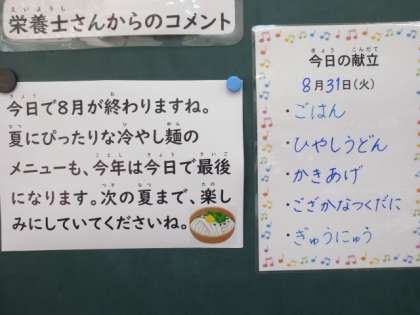 栄養士さんからのコメント
今日で8月が終わりますね。
夏にぴったりな冷やし麺の
メニューも、今年は今日で最後
になります。次の夏まで、楽し
みにしていてくださいね。
今日の献立
8月31日(火)
・ごはん
・ひやしうどん
・かきあげ
・ござかなつくだに
・ぎゅうにゅう